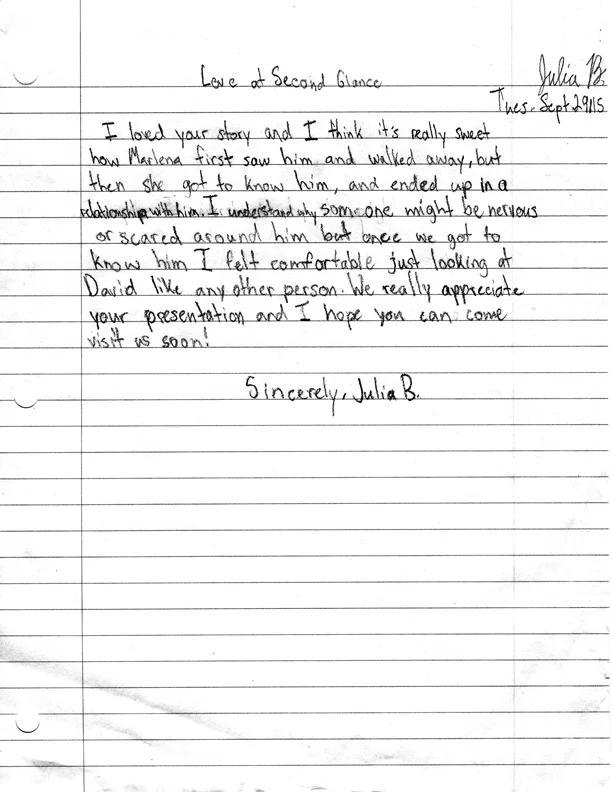 Love at Second Glance
Julia B.
Tues. Sept 29/15
I loved your story and I think it's really sweet
how Marlena first saw him and walked away, but
then she got to know him, and ended up in a
relationship with him. I understand why someone might be nervous
or scared around him but once we got to
know him I felt comfortable just looking at
David like any other person. We really appreciate
your presentation and I hope you can come
visit us soon!
Sincerely, Julia B.